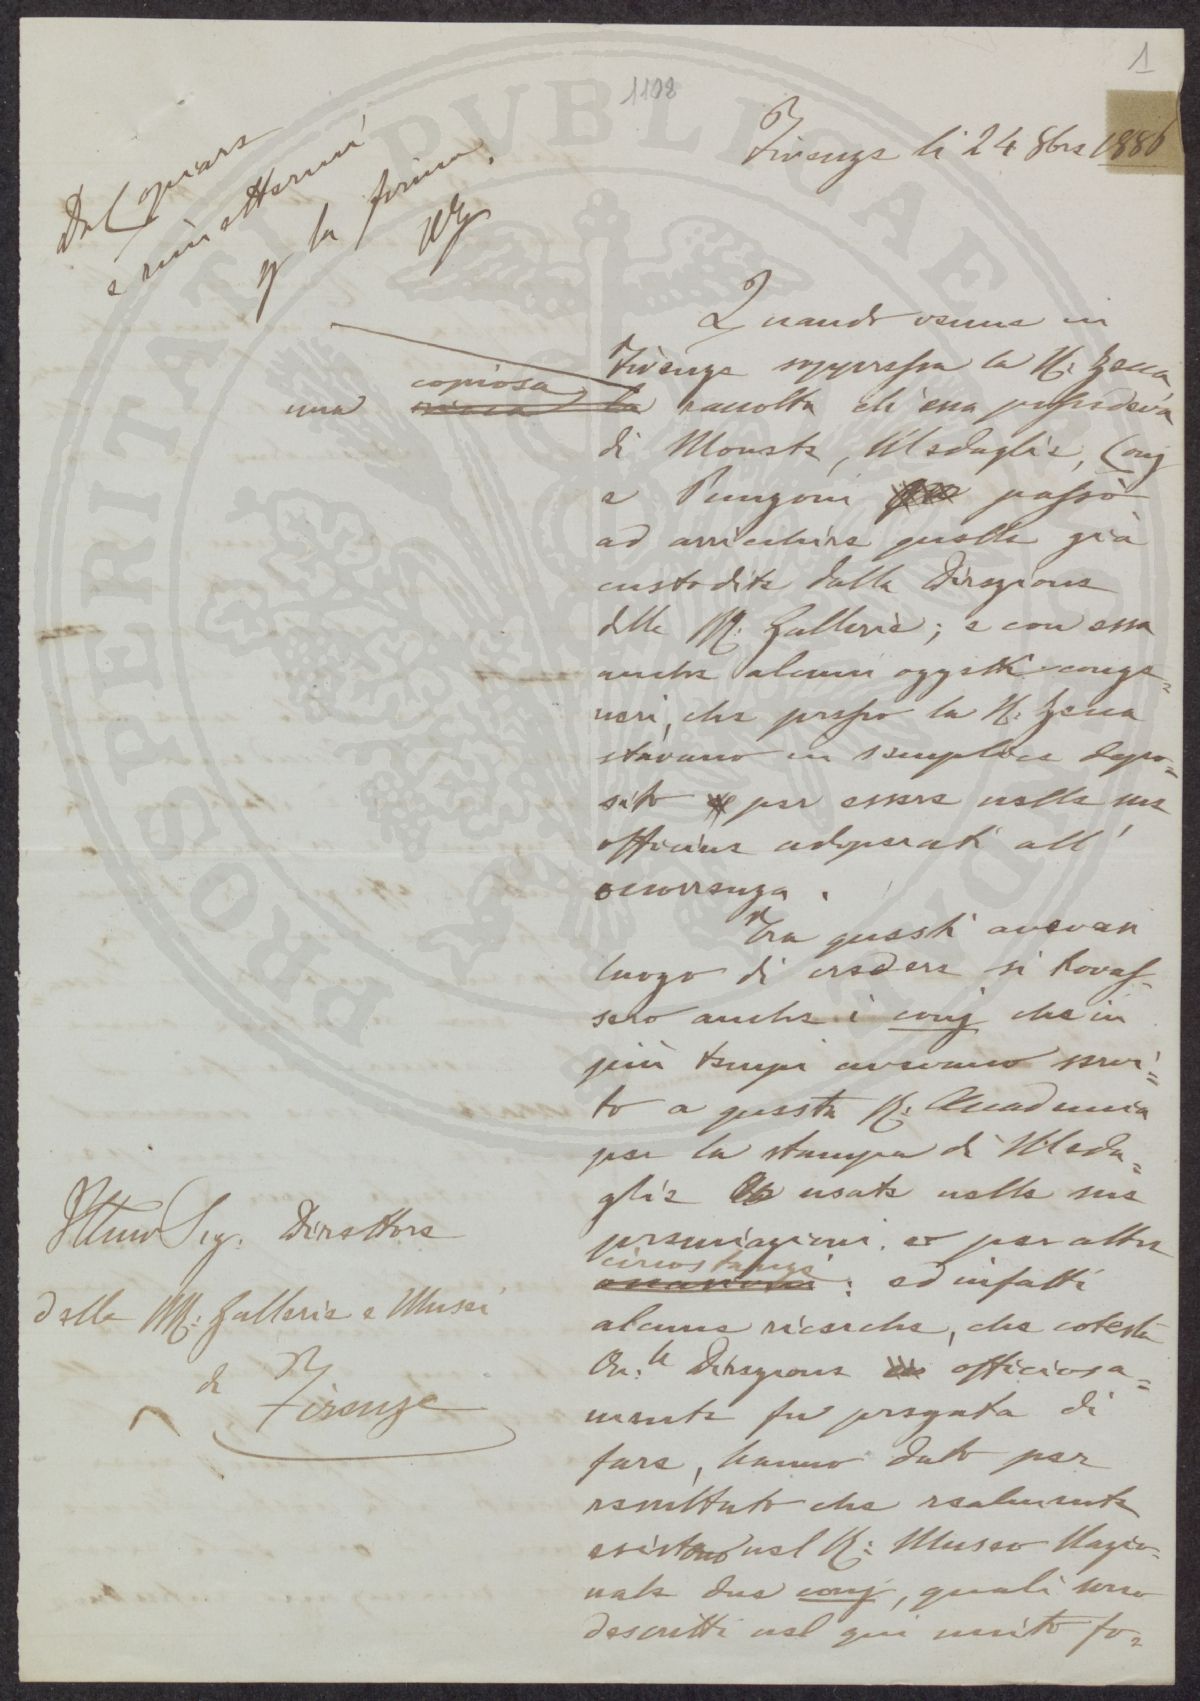 1
1108
Firenze li 24 8bre 1886
Da Copiare
e rimettermi
p la firma.
Quando venne in
Firenze soppressa la R: Zecca
copiosa
una ricca la raccolta ch'essa possedeva
di Monete, Medaglie, Conj
e Punzoni passò
ad arricchire quelle già
custodite dalla Direzione
delle RR: Gallerie; e con essa
anche alcuni oggetti conge=
neri, che presso la R: Zecca
stavano in semplice depo=
sito per essere nelle sue
officine adoperati all'
occorrenza.
Tra questi avevan
luogo di credere si trovas-
sero anche i conj che in
più tempi avevano servi=
to a questa R: Accademia
per la stampa di Meda=
glie usate nelle sue
premiazioni. e per altre
circostanze
occasioni: ed infatti
alcune ricerche, che cotesta
On.le Direzione officiosa=
mente fu pregata di
fare, hanno dato per
resultato che realmente
esistono nel R: Museo Nazio=
nale due conj, quali sono
descritti nel qui unito fo=
Illmo Sig. Direttore
delle RR: Gallerie e Musei
di Firenze
PROSPERITATI PVBLICAE AVGENDAE